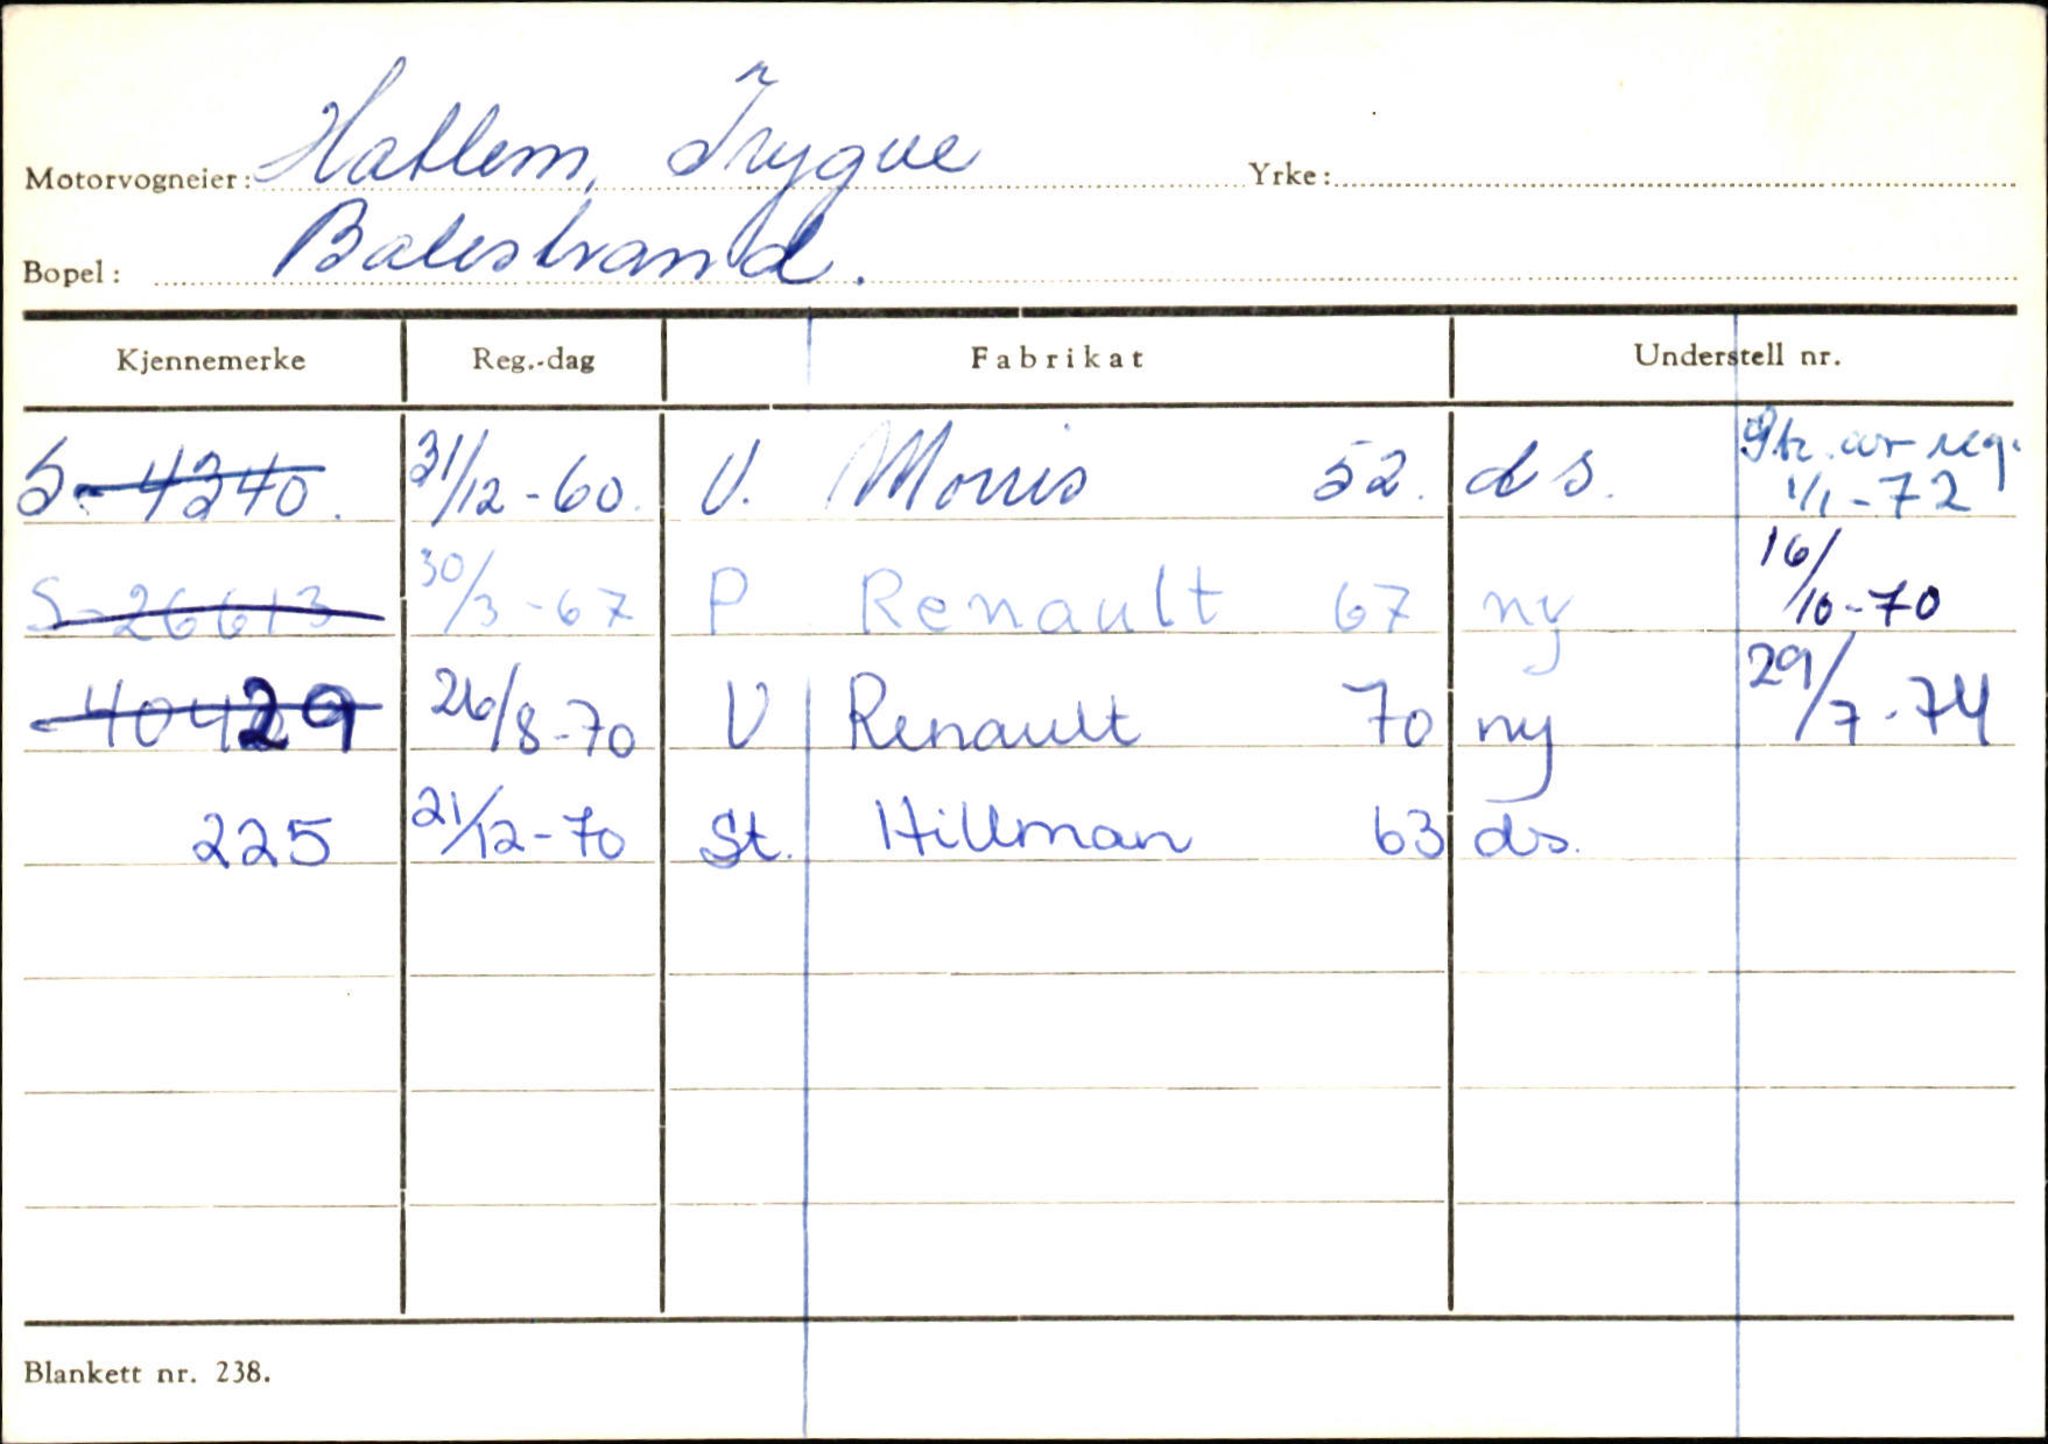 Motorvogneier: Hatlem, Trygve Yrke:
Bopel: Balestrand.
Kjennemerke Reg.-dag Fabrikat Understell nr.
S-4340. 31/12-60. V. Morris 52. ds. avreg. 1/1-72
S-26613 30/3-67 P Renault 67 ny 16/10-70
40429 26/8-70 V Renault 70 ny 29/7-74
225 21/12-70 St. Hillman 63 ds.
Blankett nr. 238.